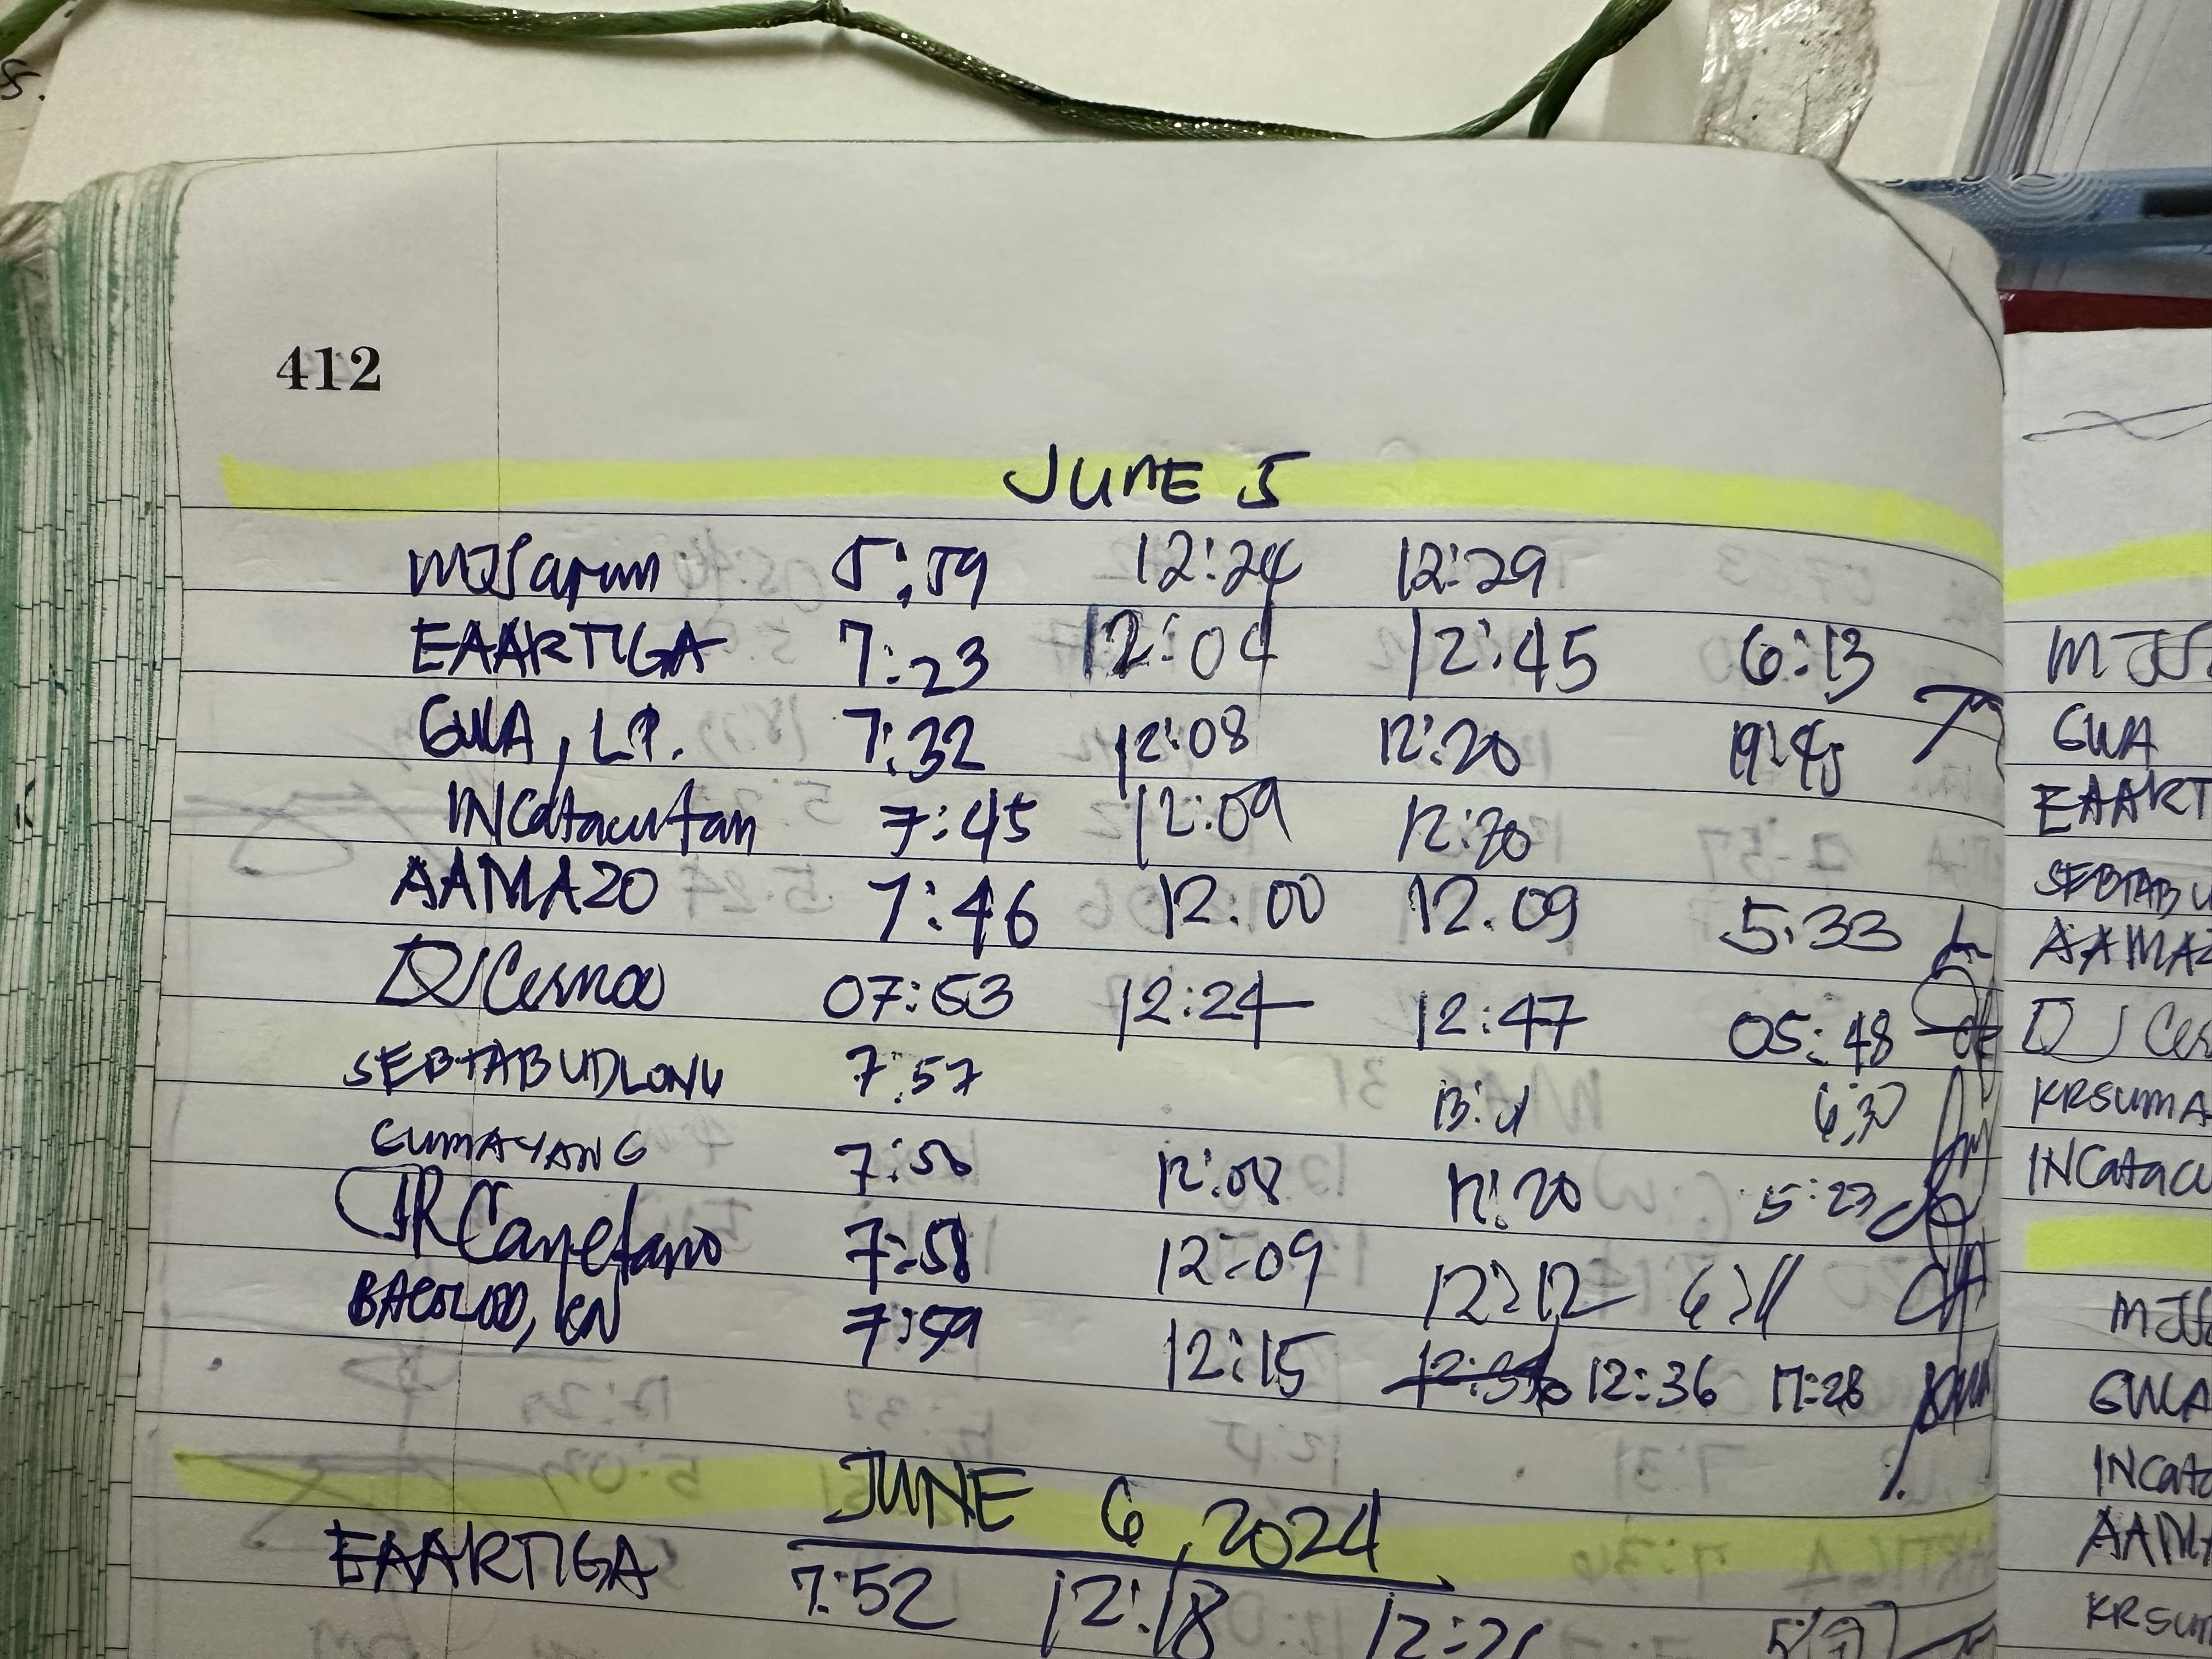 412
JUNE 5
MJSapun 5:59 12:24 12:29
EAARTIGA 7:23 12:04 12:45 6:13
GWA, LP. 7:32 12:08 12:20 19:45
INCatacutan 7:45 12:09 12:20
AAMAZO 7:46 12.00 12.09 5:33
DJCerna 07:53 12:24 12:47 05:48
SEBTABUDLONG 7:57
CUMAYANG 12:08 12:20 5:23
JRCanetano 7:58 12:09 12:12 6:11
BACOLOD, KN 7:59 12:15 12:36 12:36 17:28
JUNE 6, 2024
EAARTIGA 7:52 12:18
MJS
GWA
EAART
SEBTABU
AAMAZ
DJ Cer
KRSUMA
INCatacu
MJS
GWA
INCata
AAMA
KRSUM